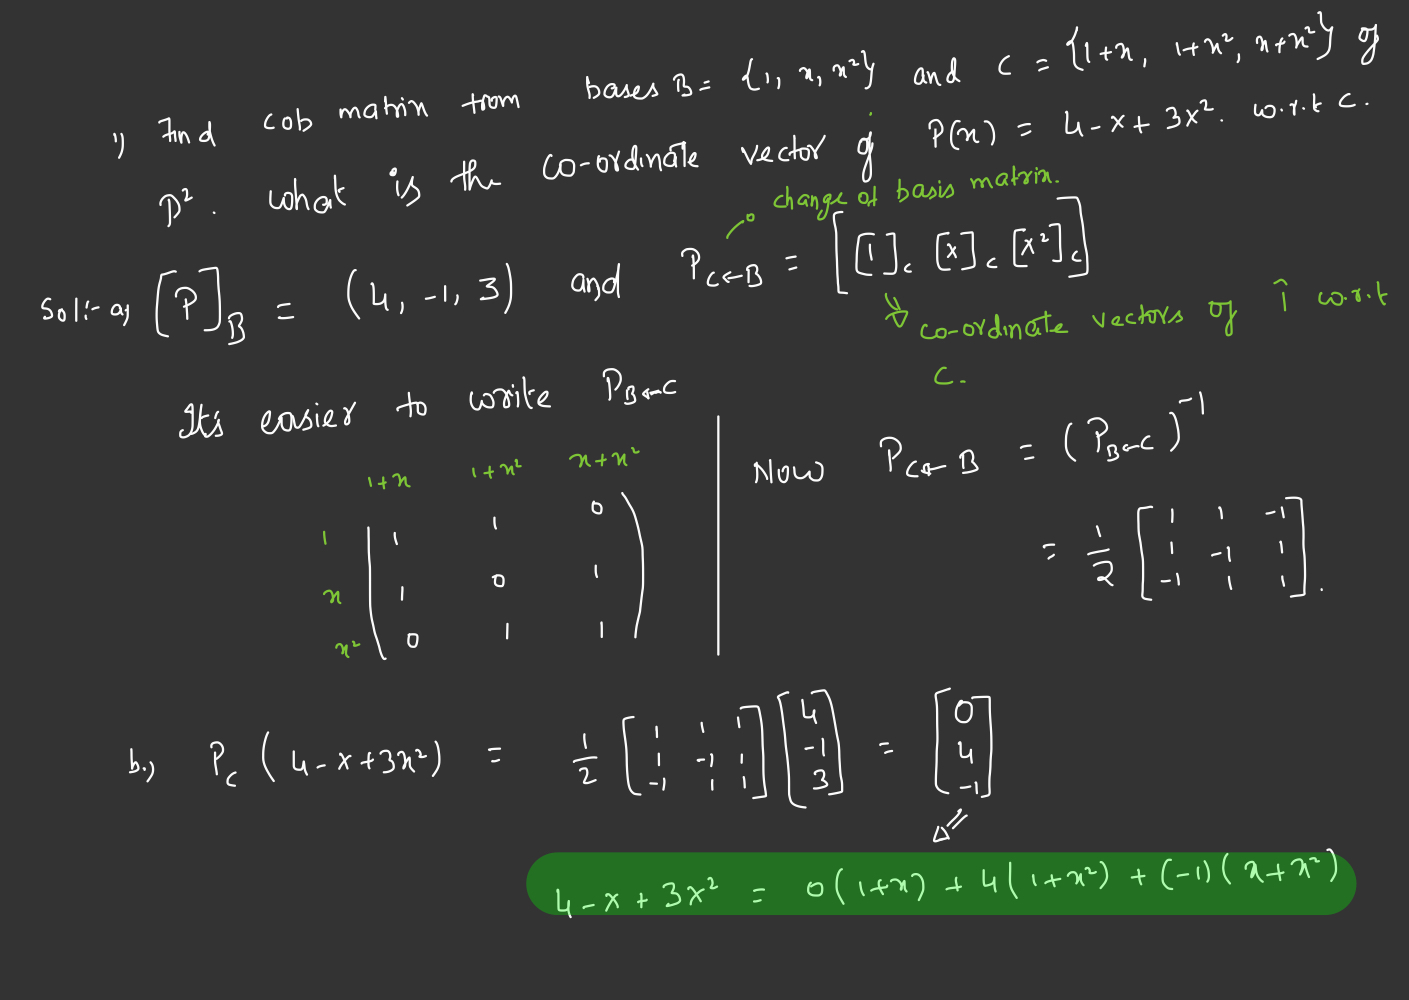 1) Find cob matrix from bases B = {1, x, x²} and C = {1+x, 1+x², x+x²} of
P². what is the co-ordinate vector of P(x) = 4-x+3x². w.r.t C.
change of basis matrix.
Sol:- a) [P]_B = (4, -1, 3) and P_{C←B} = [[1]_C [x]_C [x²]_C]
co-ordinate vectors of î w.r.t
C.
It's easier to write P_{B←C}
1+x 1+x² x+x²
1 1 1 0
x 1 0 1
x² 0 1 1
Now P_{C←B} = (P_{B←C})⁻¹
= 1/2 [1 1 -1
1 -1 1
-1 1 1].
b.) P_C (4-x+3x²) = 1/2 [1 1 1
1 -1 1
-1 1 1] [4
-1
3] = [0
4
-1]
4-x+3x² = 0(1+x) + 4(1+x²) + (-1)(x+x²)